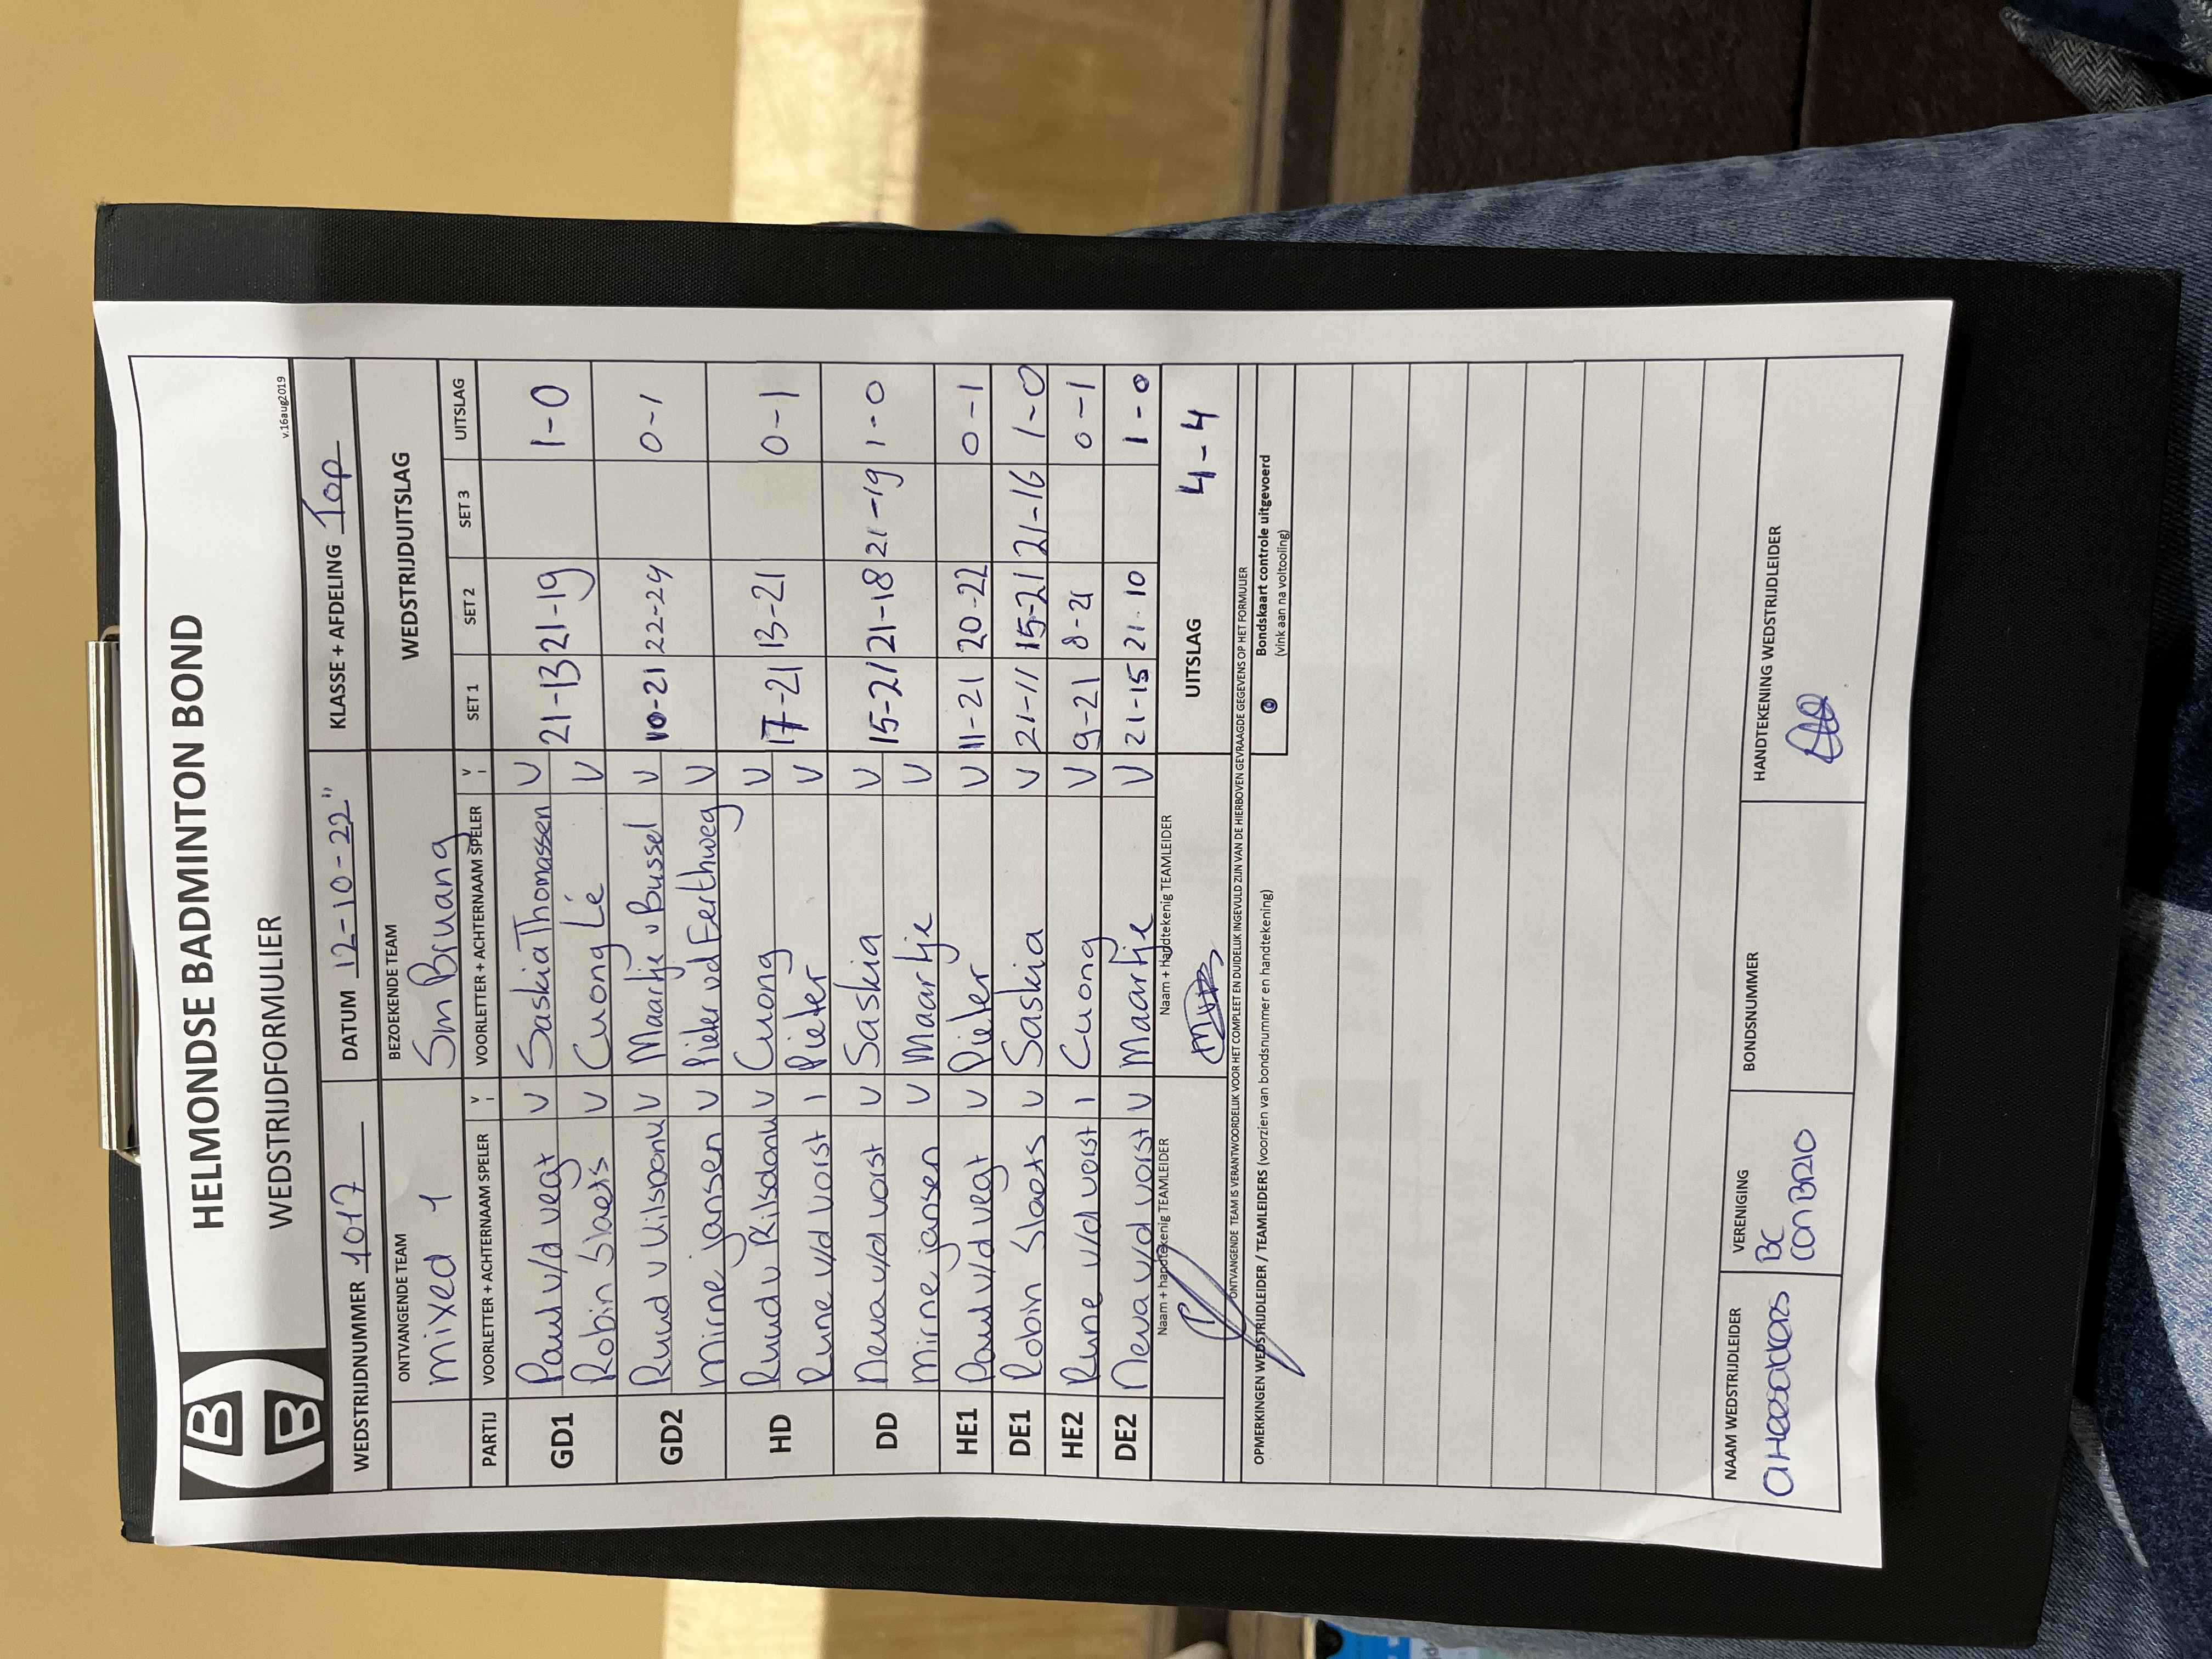 HELMONDSE BADMINTON BOND
WEDSTRIJDFORMULIER
v.16aug2019
WEDSTRIJDNUMMER 1017 DATUM 12-10-22" KLASSE + AFDELING Top
ONTVANGENDE TEAM BEZOEKENDE TEAM WEDSTRIJDUITSLAG
mixed 1 Sm Bruang
PARTIJ VOORLETTER + ACHTERNAAM SPELER V I VOORLETTER + ACHTERNAAM SPELER V I SET 1 SET 2 SET 3 UITSLAG
GD1 Paul v/d vegt V Saskia Thomassen V 21-13 21-19 1-0
Robin Slaets V Cuong Lé V
GD2 Ruud v V Maartje v Bussel V 10-21 22-24 0-1
Mirne jansen V Pieter vd Eerthweg V
HD Ruud v Rilsdonk V Cuong V 17-21 13-21 0-1
Rune v/d vorst I Pieter V
DD Neva v/d vorst V Saskia V 15-21 21-18 21-19 1-0
Mirne jansen V Maartje V
HE1 Paul v/d vegt V Pieter V 11-21 20-22 0-1
DE1 Robin Slaets V Saskia V 21-11 15-21 21-16 1-0
HE2 Rune v/d vorst I Cuong V 9-21 8-21 0-1
DE2 Neva v/d vorst V Maartje V 21-15 21-10 1-0
Naam + handtekenig TEAMLEIDER Naam + Handtekenig TEAMLEIDER UITSLAG 4-4
ONTVANGENDE TEAM IS VERANTWOORDELIJK VOOR HET COMPLEET EN DUIDELIJK INGEVULD ZIJN VAN DE HIERBOVEN GEVRAAGDE GEGEVENS OP HET FORMULIER
OPMERKINGEN WEDSTRIJDLEIDER / TEAMLEIDERS (voorzien van bondsnummer en handtekening)
Bondskaart controle uitgevoerd
(vink aan na voltooiing)
NAAM WEDSTRIJDLEIDER VERENIGING BONDSNUMMER HANDTEKENING WEDSTRIJDLEIDER
BC
CON BRIO